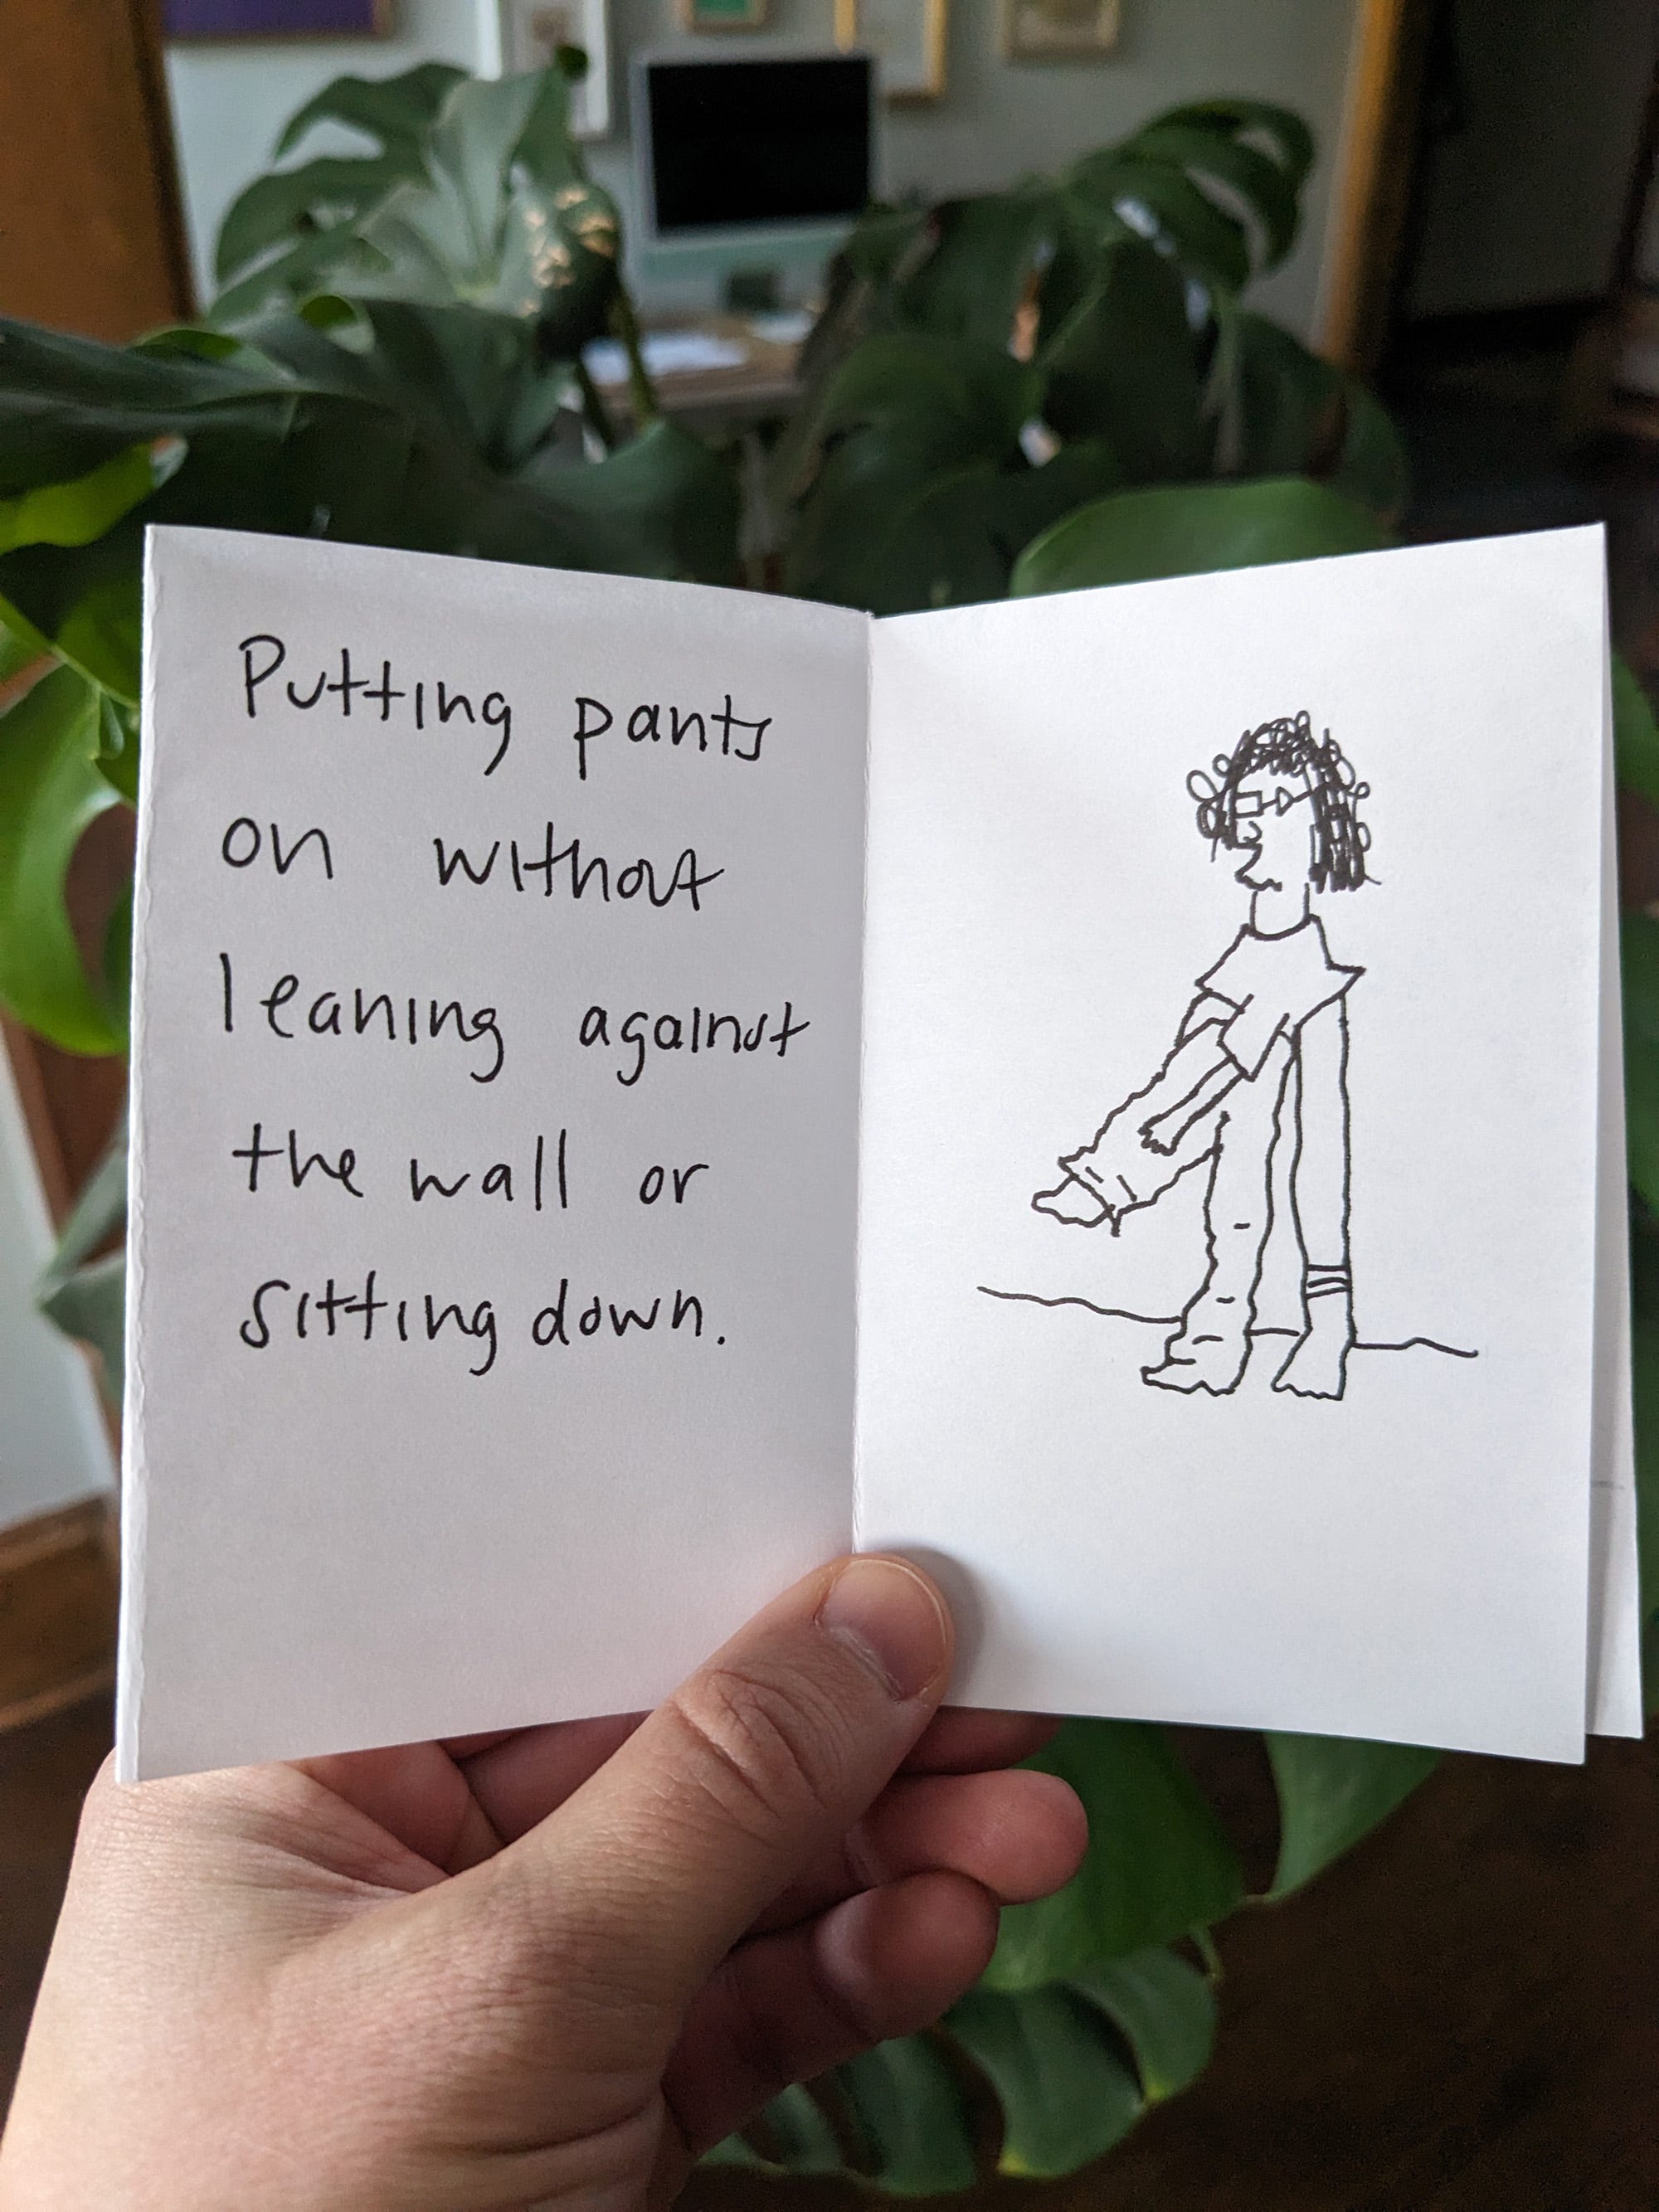 Putting pants
on without
leaning against
the wall or
sitting down.